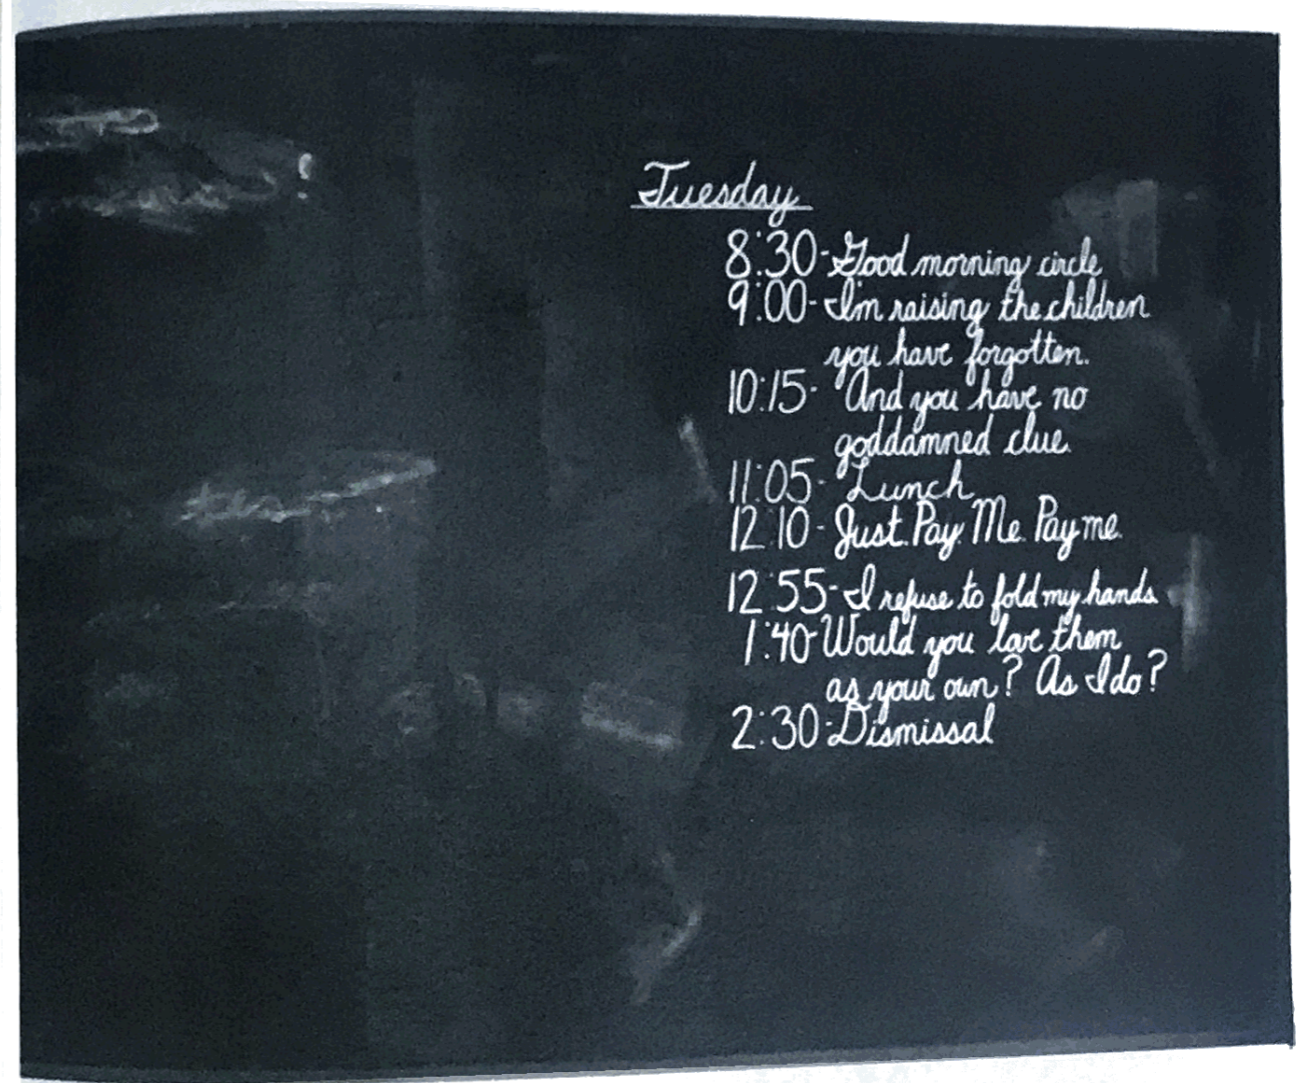 Tuesday
8:30-Good morning circle
9:00-I'm raising the children
you have forgotten.
10:15- And you have no
goddamned clue.
11:05- Lunch
12:10- Just. Pay. Me. Pay me.
12:55-I refuse to fold my hands.
1:40-Would you love them
as your own? As I do?
2:30-Dismissal